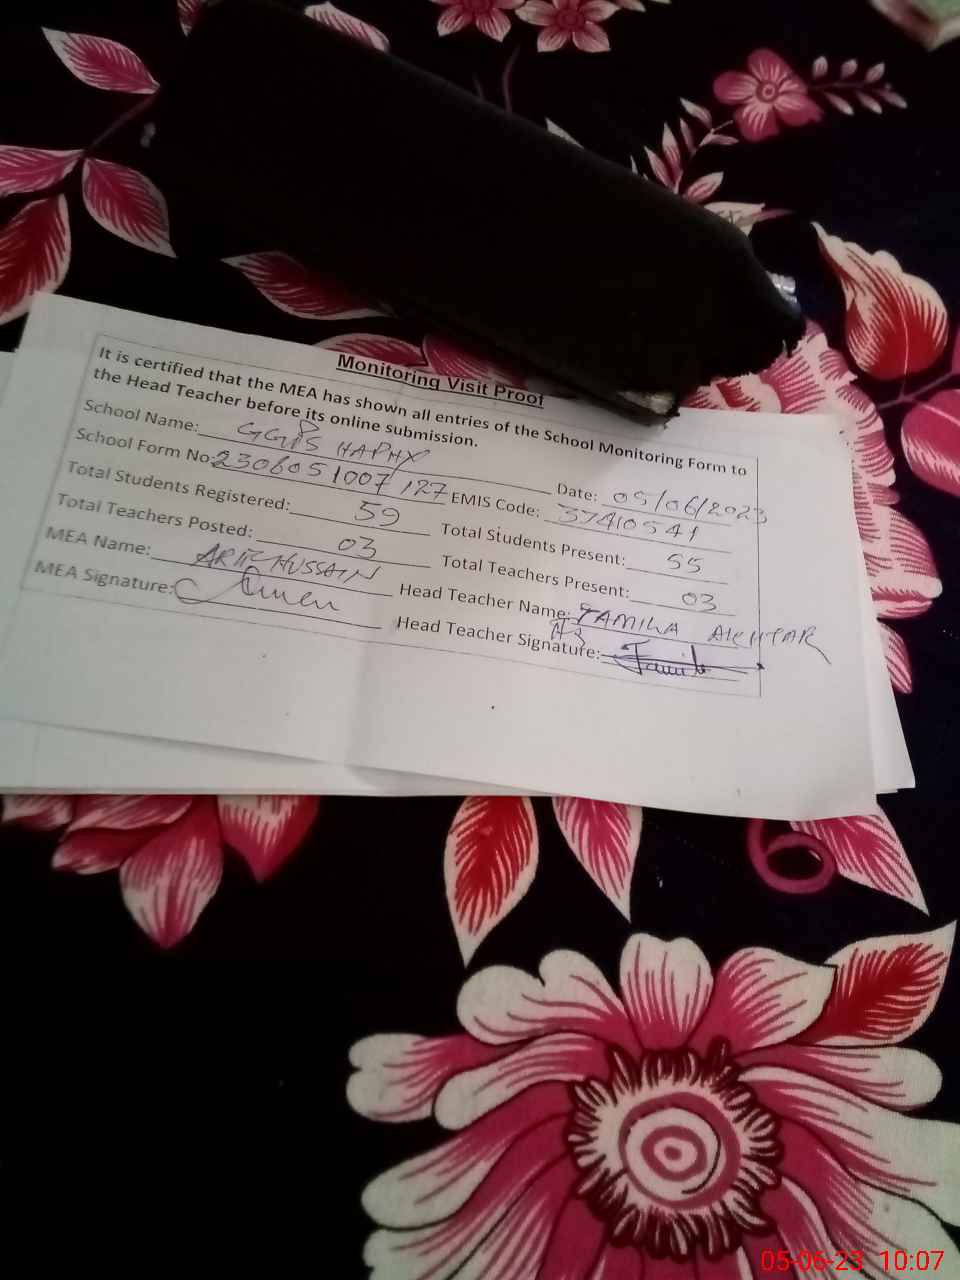 Monitoring Visit Proof
It is certified that the MEA has shown all entries of the School Monitoring Form to
the Head Teacher before its online submission.
School Name: GGPS HAPHX Date: 05/06/2023
School Form No: 2306051007127 EMIS Code: 37410541
Total Students Registered: 59 Total Students Present: 55
Total Teachers Posted: 03 Total Teachers Present: 03
MEA Name: HUSSAIN Head Teacher Name: JAMILA AKHTAR
MEA Signature: Head Teacher Signature:
05-06-23 10:07